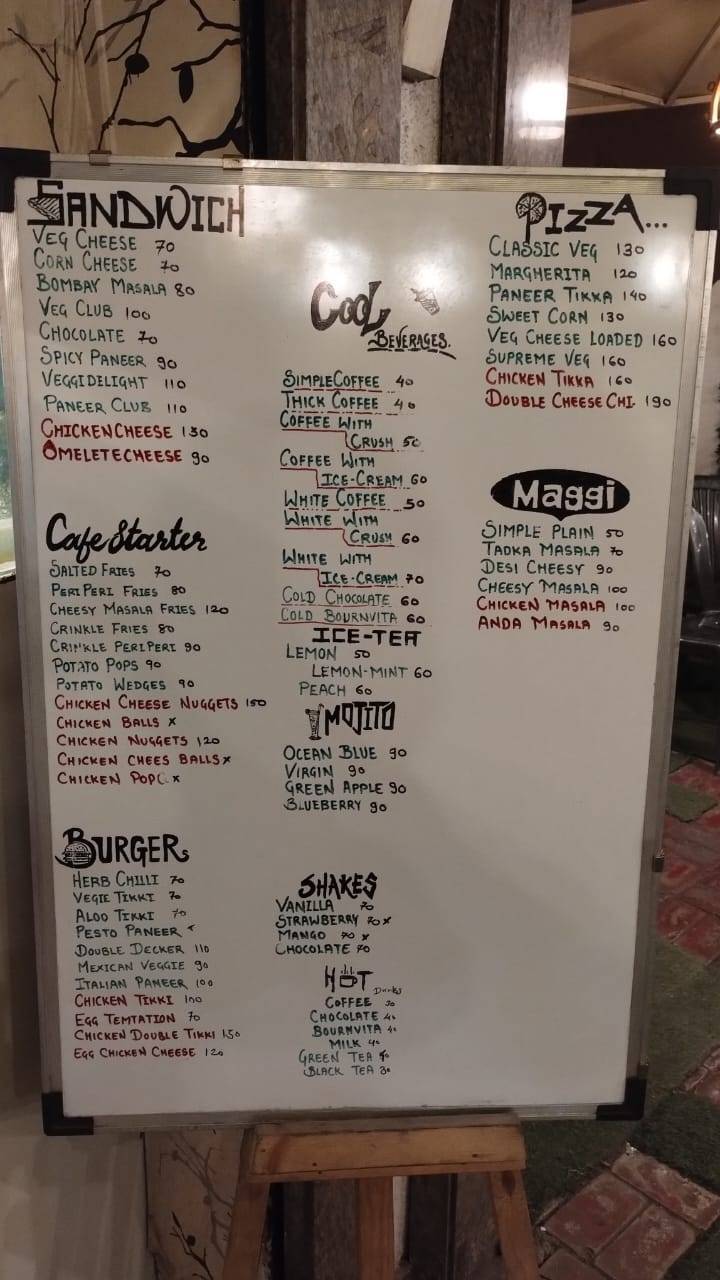 SANDWICH
VEG CHEESE 70
CORN CHEESE 70
BOMBAY MASALA 80
VEG CLUB 100
CHOCOLATE 70
SPICY PANEER 90
VEGGIDELIGHT 110
PANEER CLUB 110
CHICKENCHEESE 130
OMELETECHEESE 90
Cafe Starter
SALTED FRIES 70
PERI PERI FRIES 80
CHEESY MASALA FRIES 120
CRINKLE FRIES 80
CRINKLE PERI PERI 90
POTATO POPS 90
POTATO WEDGES 90
CHICKEN CHEESE NUGGETS 150
CHICKEN BALLS x
CHICKEN NUGGETS 120
CHICKEN CHEES BALLS x
CHICKEN POP x
BURGERS
HERB CHILLI 70
VEGIE TIKKI 70
ALOO TIKKI 70
PESTO PANEER
DOUBLE DECKER 110
MEXICAN VEGGIE 90
ITALIAN PANEER 100
CHICKEN TIKKI 100
EGG TEMTATION 70
CHICKEN DOUBLE TIKKI 150
EGG CHICKEN CHEESE 120
COOL
BEVERAGES.
SIMPLE COFFEE 40
THICK COFFEE 40
COFFEE WITH
CRUSH 50
COFFEE WITH
ICE-CREAM 60
WHITE COFFEE 50
WHITE WITH
CRUSH 60
WHITE WITH
ICE-CREAM 70
COLD CHOCOLATE 60
COLD BOURNVITA 60
ICE-TEA
LEMON 50
LEMON-MINT 60
PEACH 60
MOJITO
OCEAN BLUE 90
VIRGIN 90
GREEN APPLE 90
BLUEBERRY 90
SHAKES
VANILLA 70
STRAWBERRY 70 x
MANGO 70 x
CHOCOLATE 70
HOT
Drinks
COFFEE 30
CHOCOLATE 40
BOURNVITA 40
MILK 40
GREEN TEA 40
BLACK TEA 30
PIZZA...
CLASSIC VEG 130
MARGHERITA 120
PANEER TIKKA 140
SWEET CORN 130
VEG CHEESE LOADED 160
SUPREME VEG 160
CHICKEN TIKKA 160
DOUBLE CHEESE CHI. 190
Maggi
SIMPLE PLAIN 50
TADKA MASALA 70
DESI CHEESY 90
CHEESY MASALA 100
CHICKEN MASALA 100
ANDA MASALA 90